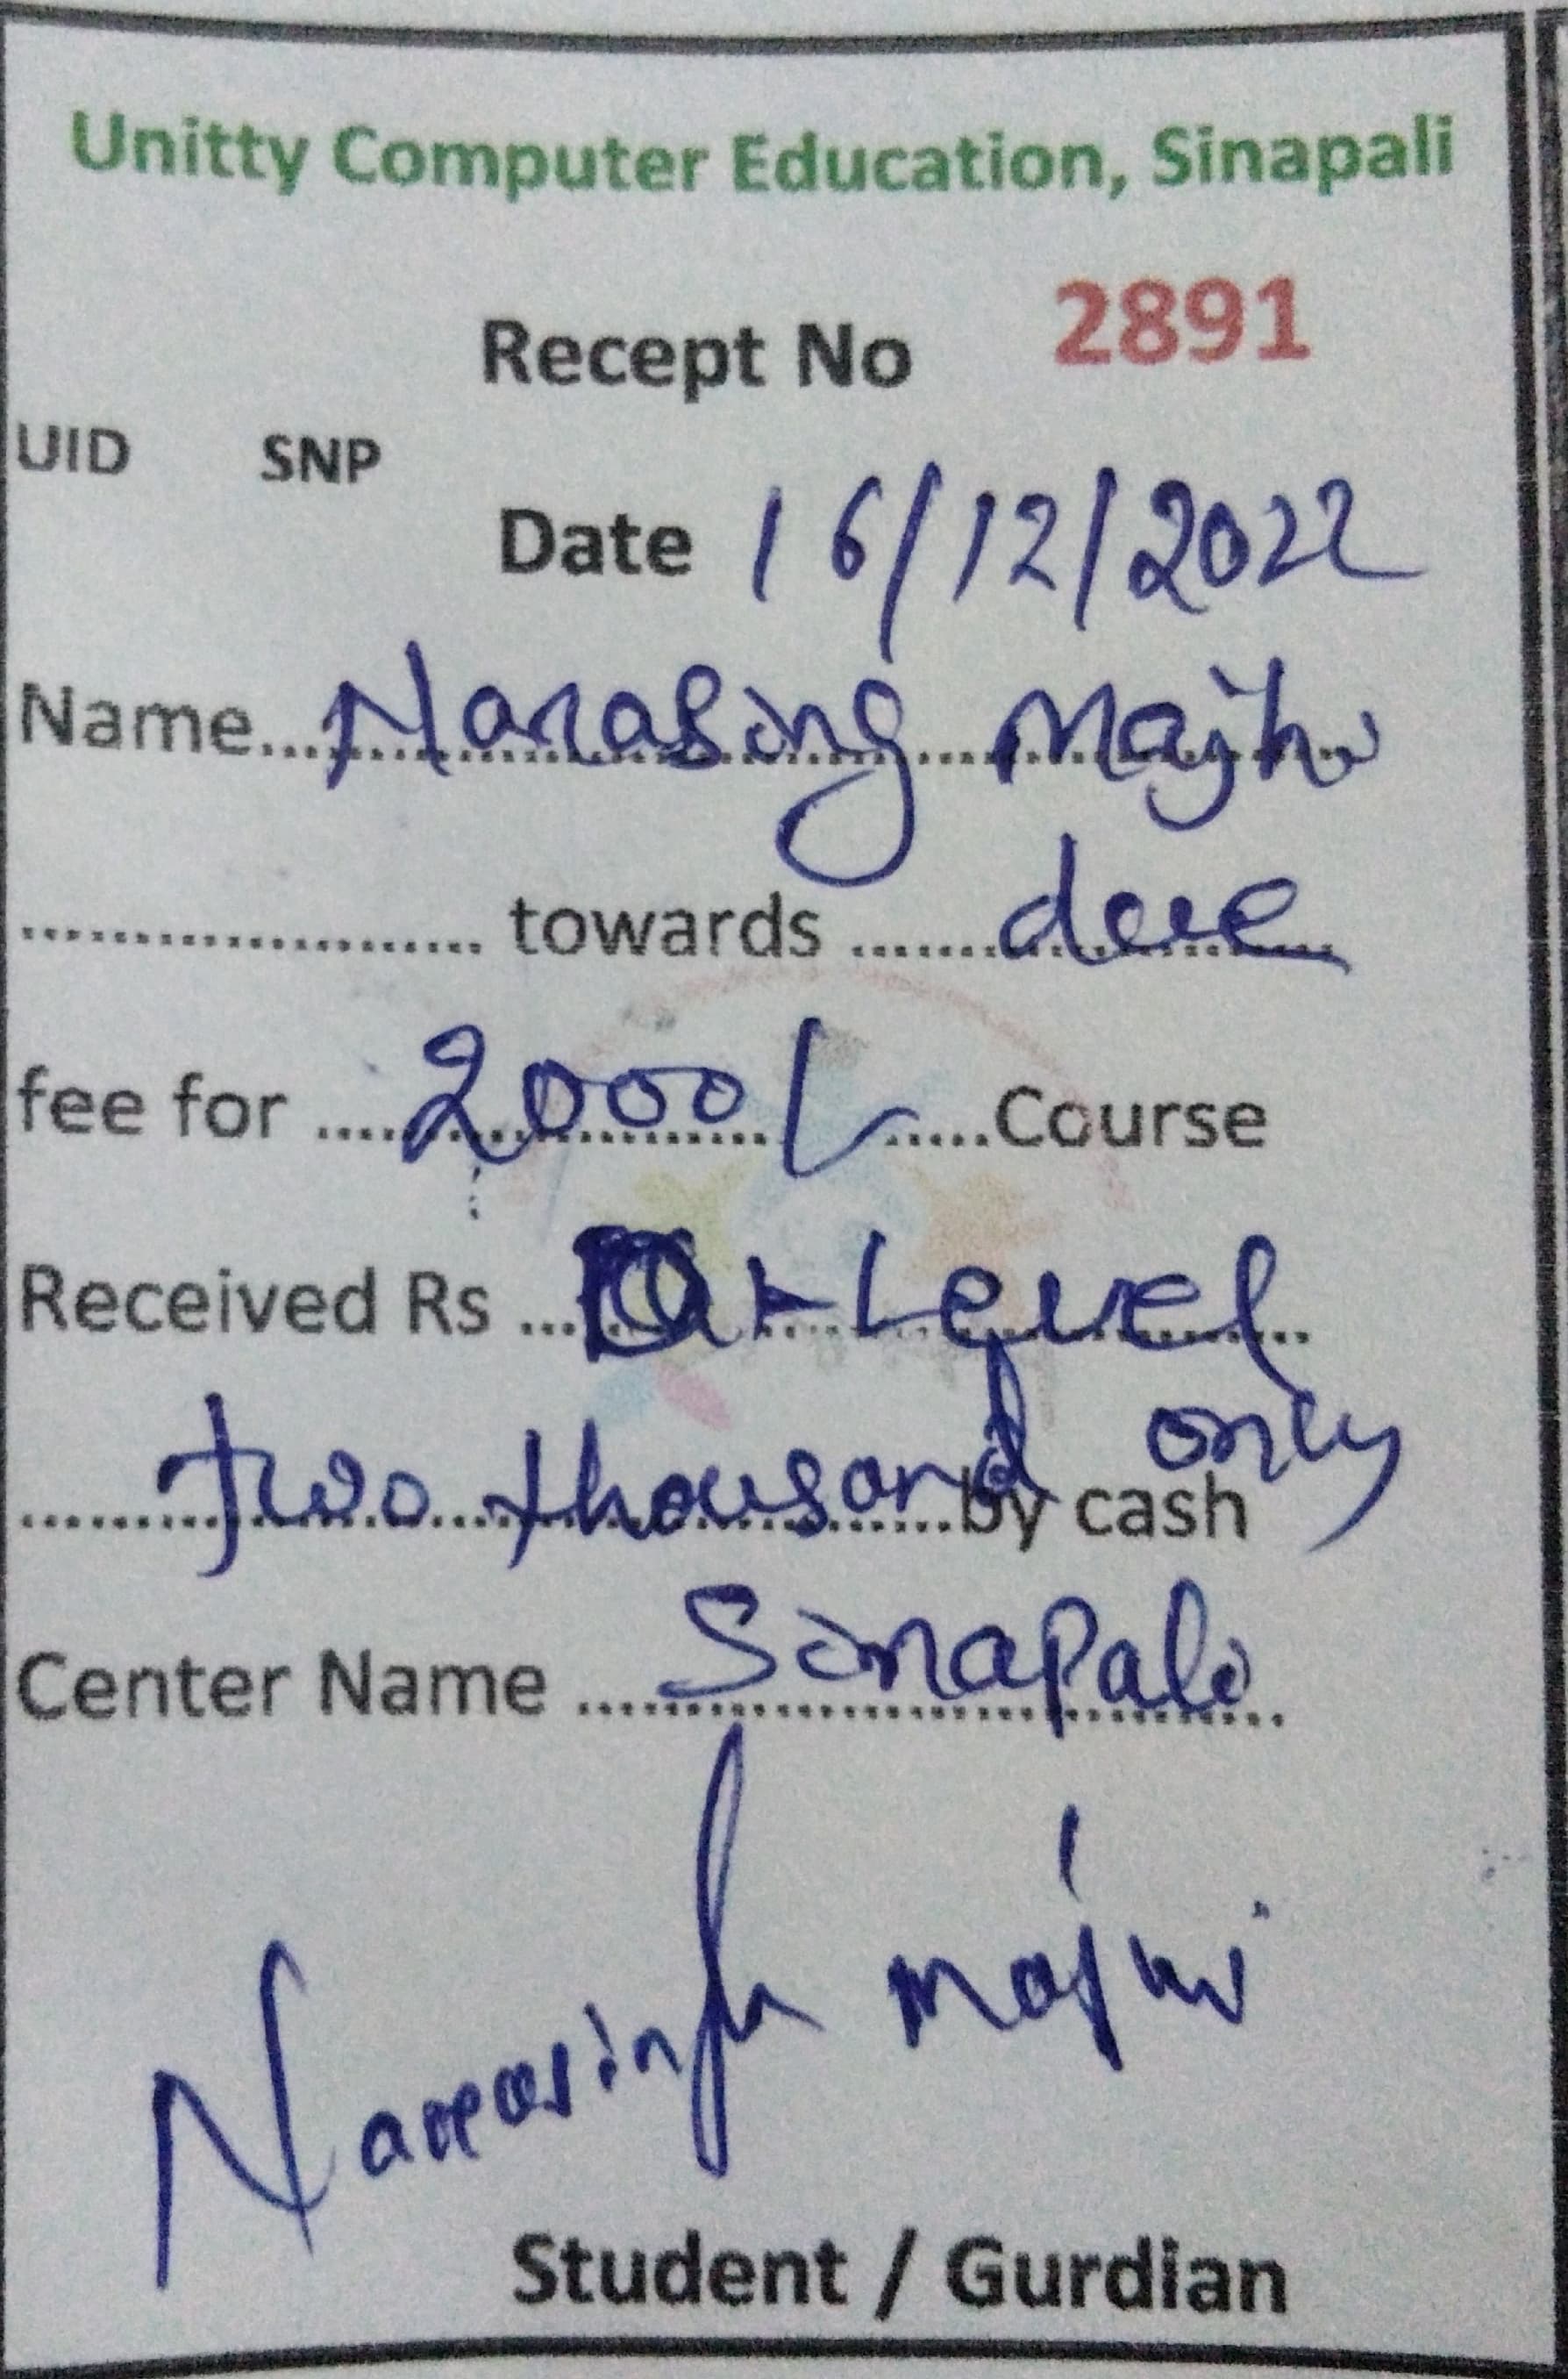 Unitty Computer Education, Sinapali
Recept No 2891
UID SNP
Date 16/12/2022
Name... Narasing Majhi
.................... towards ....... due
fee for .... 2000/- .....Course
Received Rs ... Level
... two thousand only
by cash
Center Name ... Sinapali
Narasingh majhi
Student / Gurdian